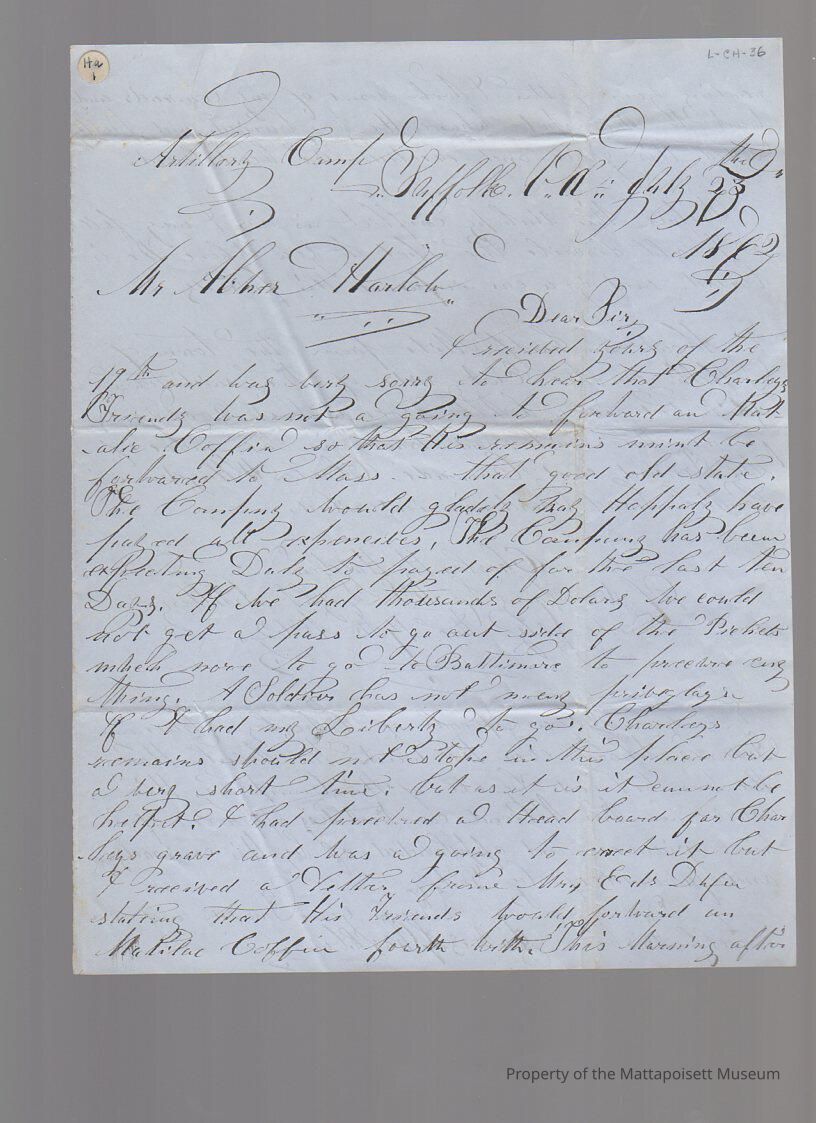 Ha
1
L-CH-36
Artillery Camp
Suffolk. Va. July 23
1862
Mr Abner Harlow
Dear Sir,
I recieved yours of the
19th and was very sorry to hear that Charleys
Friends was not a going to forward an Mat
alic Coffin so that his remains mint be
forwared to Mass. that good old state.
The Compny would gladely Happaly have
payed all expencies, The Compuny has been
expecting Daly to payed of for the last ten
Days. If we had thousands of Dolars we could
not get a pass to go out side of the Pickets
much more to go to Baltimore to precure eny
thing. A Soldier has not meny
If I had my Liberty to go. Charleys
remains should not stope in this place but
a very short time. but as it is it cannot be
helpet. I had precured a Head board for Char
leys grave and was a going to erect it but
I received a Letter frome Mrs Eds
stateing that His Friends would forward an
Matilac Coffin fourth with. This Morning after
Property of the Mattapoisett Museum